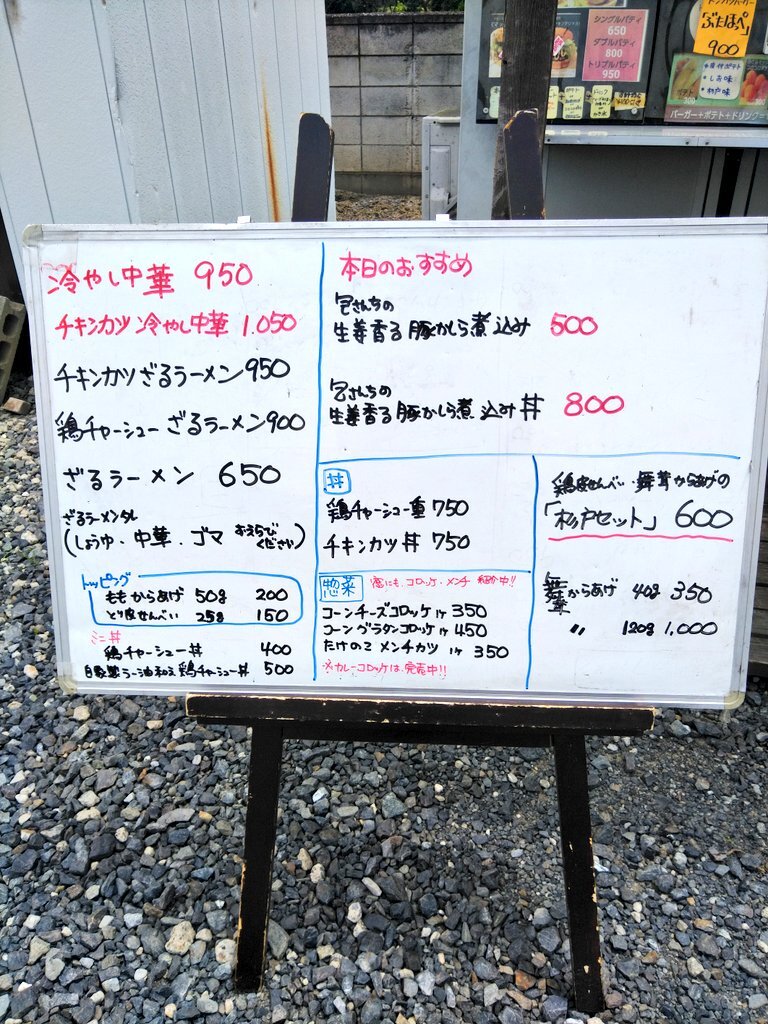 冷やし中華 950
チキンカツ冷やし中華 1.050
チキンカツざるラーメン 950
鶏チャーシューざるラーメン 900
ざるラーメン 650
ざるラーメンタレ
(しょうゆ、中華、ゴマ おえらびください)
トッピング
ももからあげ 50g 200
とり皮せんべい 25g 150
ミニ丼
鶏チャーシュー丼 400
自家製ラー油和え鶏チャーシュー丼 500
本日のおすすめ
さんちの
生姜香る豚かしら煮込み 500
さんちの
生姜香る豚かしら煮込み丼 800
丼
鶏チャーシュー重 750
チキンカツ丼 750
惣菜 他にも、コロッケ・メンチ 販売中!!
コーンチーズコロッケ 1ケ 350
コーングラタンコロッケ 1ケ 450
たけのこメンチカツ 1ケ 350
※カレーコロッケは、完売中!!
鶏皮せんべい・舞茸からあげの
「杉戸セット」 600
舞茸からあげ 40g 350
〃 120g 1,000
シングルパティ
650
ダブルパティ
800
トリプルパティ
950
ぶたはぺ
900
・しお味
ポテト
バーガー+ポテト+ドリンク